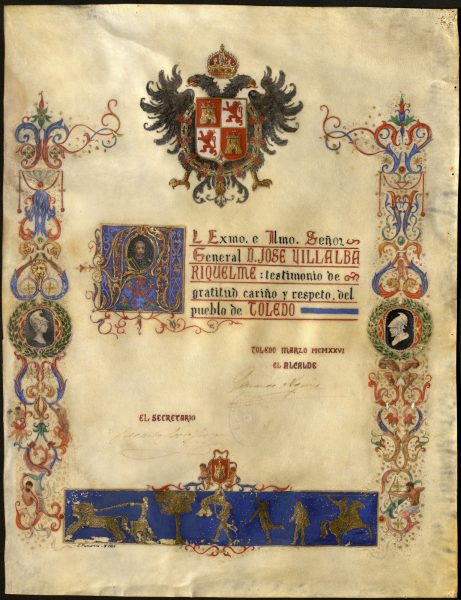 Al Exmo. e Ilmo. Señor
General D. JOSE VILLALBA
RIQUELME: testimonio de
gratitud cariño y respeto, del
pueblo de TOLEDO
TOLEDO MARZO MCMXXVI
EL ALCALDE
EL SECRETARIO